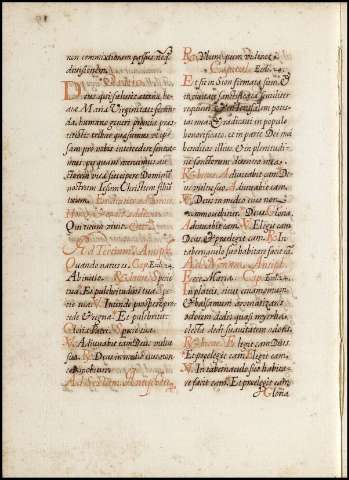 non commixtionem passus neq
divisionem.
Deus, qui salutis æternæ, be
atæ Mariæ Virginitate fecun
da, humano generi præmia præs
titisti: tribue quæsumus, ut ip
sam pro nobis intercedere sentia
mus, per quam meruimus auc
torem vitæ suscipere Dominũ
nostrum Iesum Christum filiũ
tuum.
Qui tecum vivit.
Ad Tertiam. Antiph.
Quando natus es. Cap. Eccli. 24.
Ab initio. R. breve. Specie
tua. Et pulchritudine tua. Spe
cie tua. V. Intende prospere proce
de & regna. Et pulchritu.
Gloria Patri. Specie tua.
V. Adiuvabit eam Deus vultu
suo. R. Deus in medio eius non
commovebitur.
Ad Sextam. Antiphona.
Rubum, quem viderat.
Capitul. Eccli. 24.
Et sic in Sion firmata sum, &
in civitate sanctificata similiter
requievi, & in Ierusalem potes
tas mea. Et radicavi in populo
honorificato, et in parte Dei me
hæreditas illius. Et in plenitudi
ne sanctorum detentio mea.
R. breve. Adiuvabit eam De
us vultu suo. Adiuvabit eam.
V. Deus in medio eius non
commovebitur. Deus. Gloria.
Adiuvabit eam. V. Elegit eam
Deus. Et præelegit eam. R. In
tabernaculo suo habitare facit eã.
Ad Nonam. Antiph.
Ecce Maria. Cap. Eccli. 24.
In plateis, sicut cinamomum,
& balsamum aromatizans
odorem dedi: quasi myrrha
electa dedi suavitatem odoris.
R. breve. Elegit eam Deus.
Et præelegit eam. Elegit eam.
V. In tabernaculo suo habita
re facit eam. Et præelegit eam.
Gloria